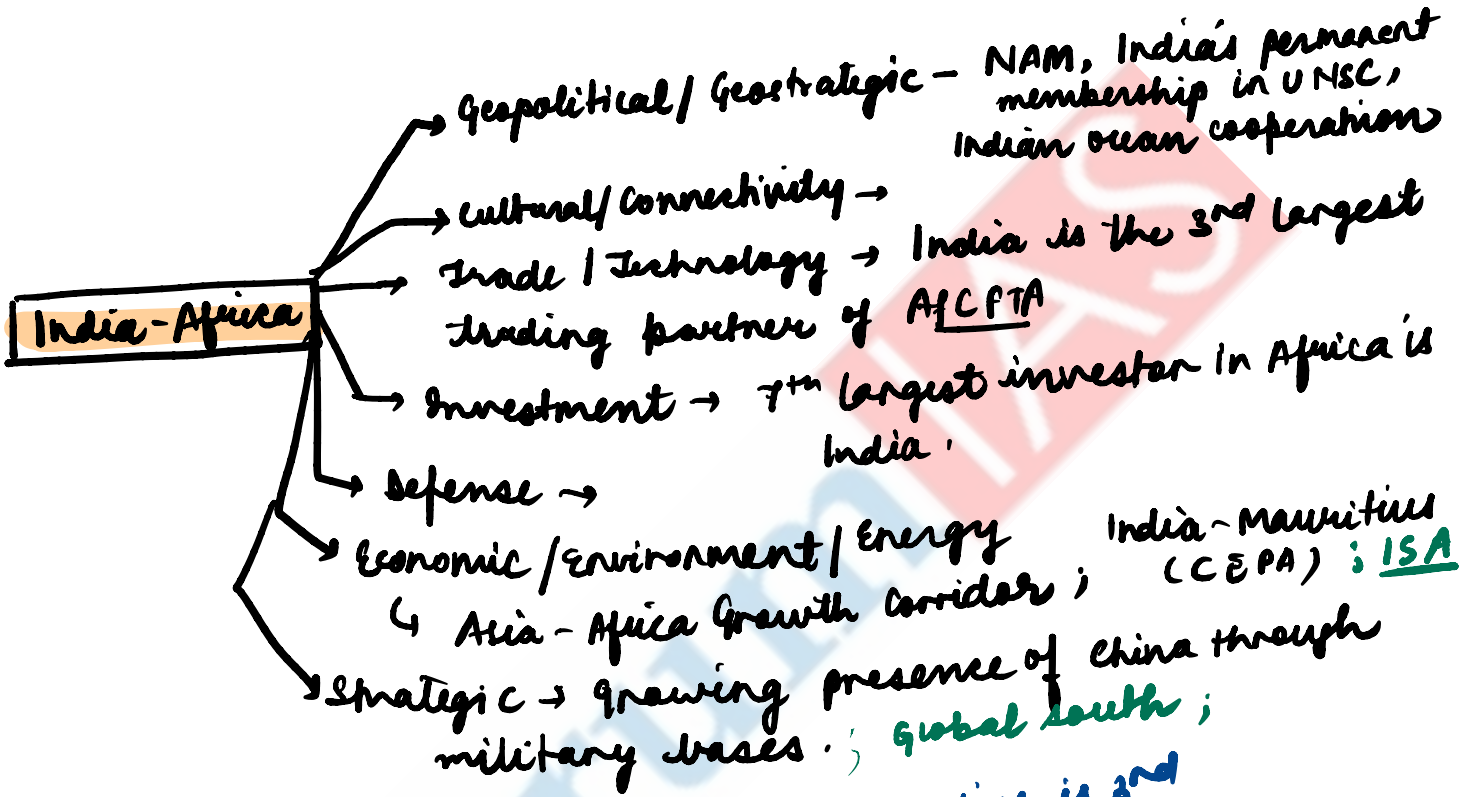 India-Africa
Geopolitical / Geostrategic - NAM, India's permanent
membership in UNSC,
Indian ocean cooperation
Cultural/Connectivity →
Trade / Technology → India is the 3rd largest
trading partner of AfCFTA
Investment → 7th largest investor in Africa is
India.
Defense →
Economic / Environment / Energy
↳ Asia-Africa Growth Corridor ; India-Mauritius
(CEPA) ; ISA
Strategic → growing presence of China through
military bases. ; Global south ;
is 3rd
IAS
rum